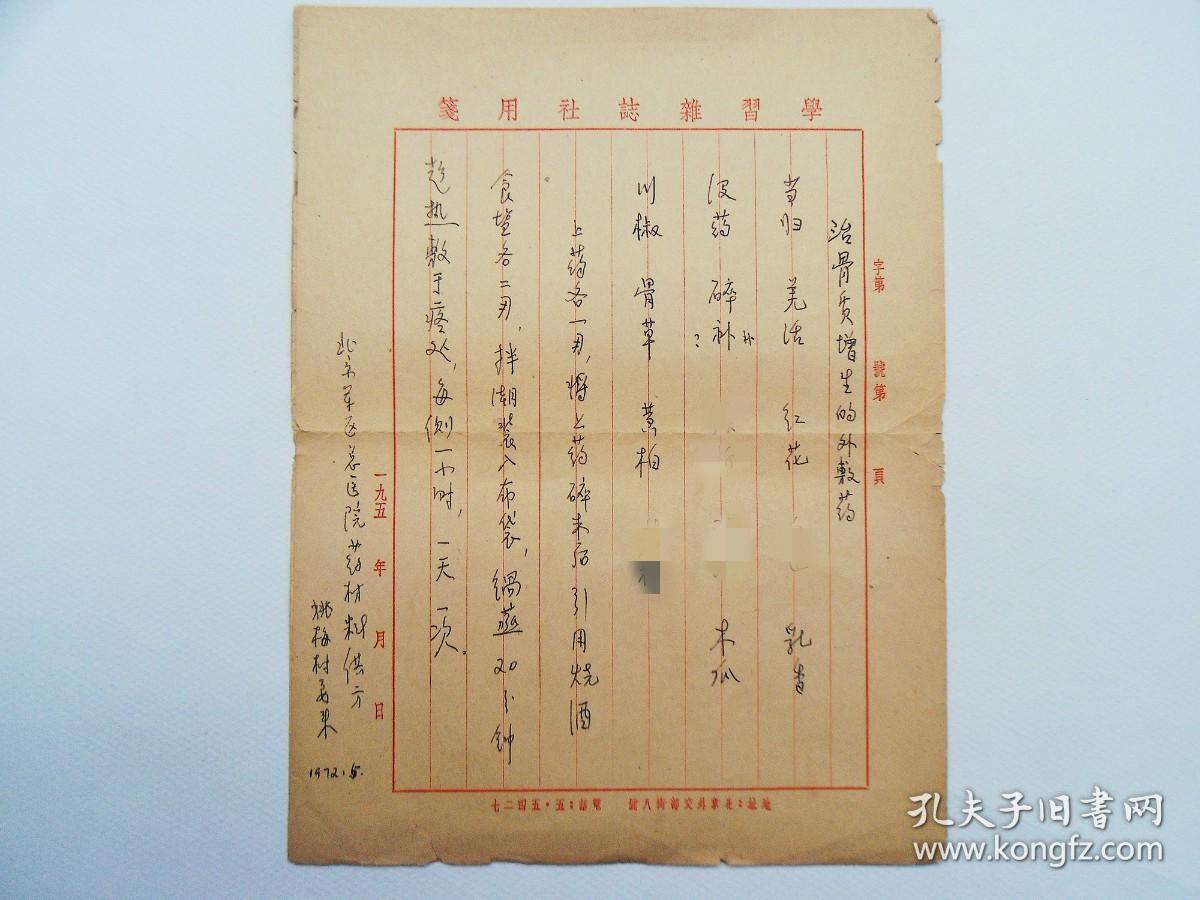 學習雜誌社用箋
字第 號第 頁
治骨质增生的外敷药
当归 羌活 红花 乳香
没药 碎补 木瓜
补
?
川椒 骨草 黄柏
上药各一两，将上药碎末后引用烧酒
食盐各二两，拌潮装入布袋，锅蒸20分钟
趁热敷于疼处，每侧一小时，一天一次。
一九五 年 月 日
北京军区总医院药材料供方
姚梅村
1972.5.
地址：北京外交部街八號 電話：五·五四二七
孔夫子旧书网
www.kongfz.com